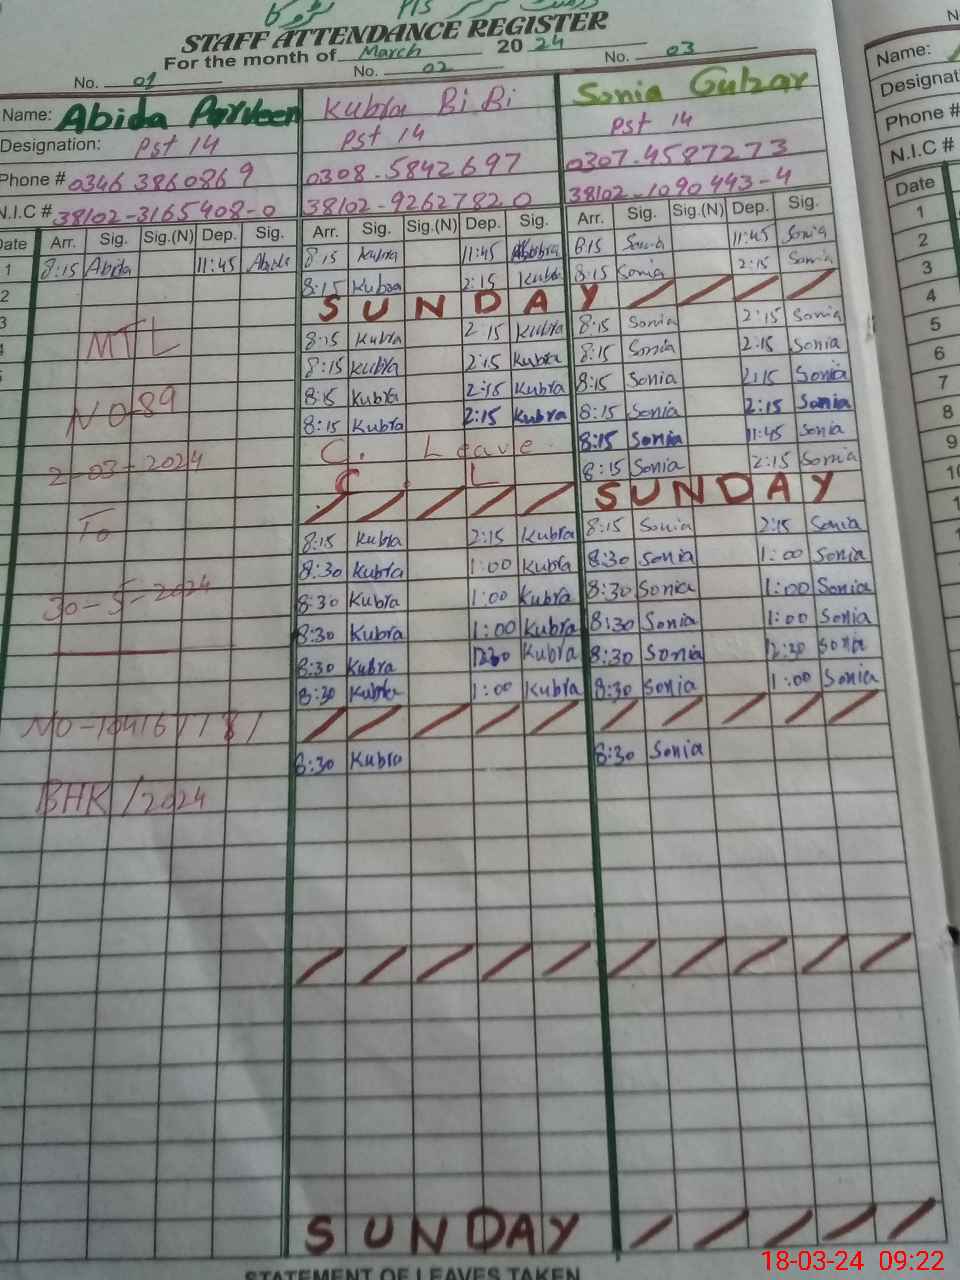 STAFF ATTENDANCE REGISTER
For the month of March 2024
No. 01 No. 02 No. 03
Name: Abida Parveen Kubra Bi Bi Sonia Gulzar
Designation: Pst 14 Pst 14 Pst 14
Phone # 0346 3860869 0308-5842697 0307-4587273
N.I.C # 38102-3165408-0 38102-9262782 0 38102-1090443-4
Date Arr. Sig. Sig.(N) Dep. Sig. Arr. Sig. Sig.(N) Dep. Sig. Arr. Sig. Sig.(N) Dep. Sig.
1 8:15 Abida 11:45 Abida 8:15 Kubra 11:45 Kubra 8:15 Sonia 11:45 Sonia
2 8:15 Kubra 2:15 Kubra 8:15 Sonia 2:15 Sonia
3 SUNDAY
MTL 8:15 Kubra 2:15 Kubra 8:15 Sonia 2:15 Sonia
8:15 Kubra 2:15 Kubra 8:15 Sonia 2:15 Sonia
NO-89 8:15 Kubra 2:15 Kubra 8:15 Sonia 2:15 Sonia
8:15 Kubra 2:15 Kubra 8:15 Sonia 2:15 Sonia
2-03-2024 C. Leave 8:15 Sonia 11:45 Sonia
C. L 8:15 Sonia 2:15 Sonia
SUNDAY
To 8:15 Kubra 2:15 Kubra 8:15 Sonia 2:15 Sonia
8:30 Kubra 1:00 Kubra 8:30 Sonia 1:00 Sonia
30-5-2024 8:30 Kubra 1:00 Kubra 8:30 Sonia 1:00 Sonia
8:30 Kubra 1:00 Kubra 8:30 Sonia 1:00 Sonia
8:30 Kubra 12:30 Kubra 8:30 Sonia 12:30 Sonia
8:30 Kubra 1:00 Kubra 8:30 Sonia 1:00 Sonia
8:30 Kubra 8:30 Sonia
BHK/2024
SUNDAY
STATEMENT OF LEAVES TAKEN
Name:
Phone #
N.I.C #
Date
1
2
3
4
5
6
7
8
9
18-03-24 09:22